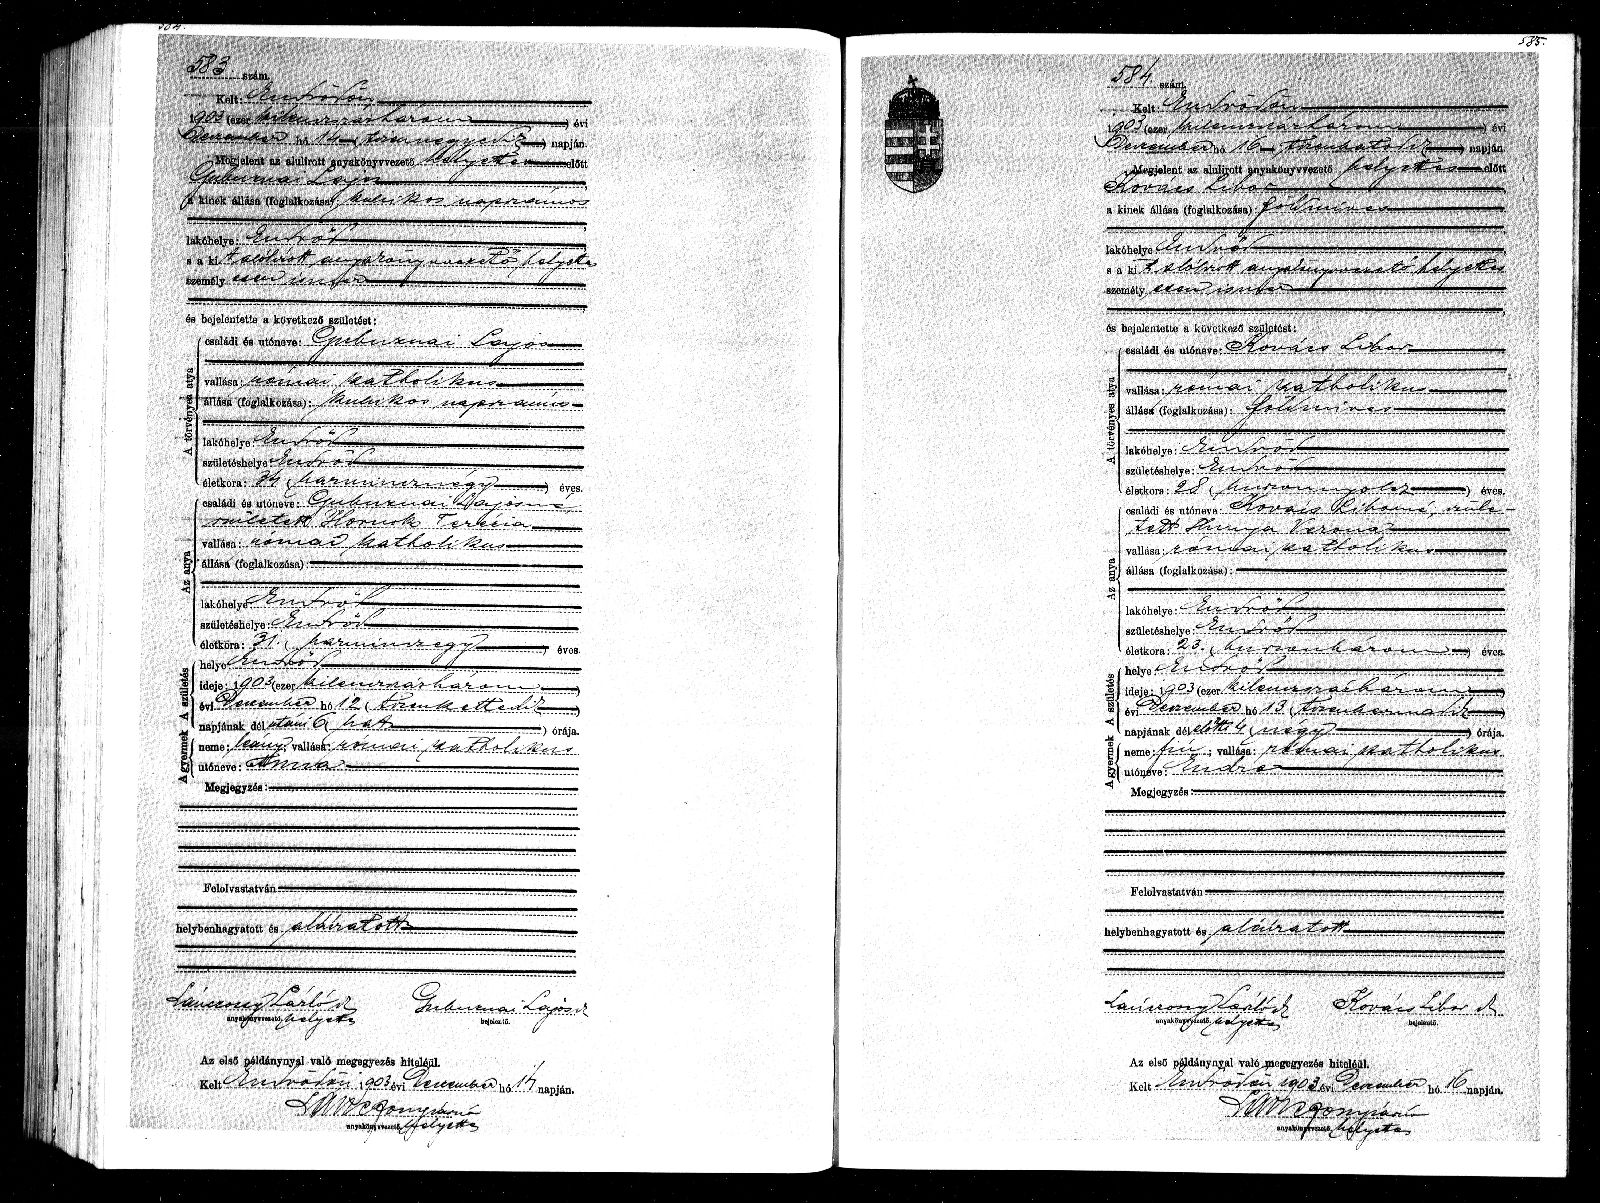 584.
583 szám.
Kelt: Endrődön,
1903 (ezer kilencszázhárom) évi
December hó 14 (tizennegyedik) napján.
Megjelent az alulirott anyakönyvvezető helyettes előtt
Gubucznai Lajos
a kinek állása (foglalkozása) kubikos napszámos
lakóhelye: Endrőd
s a kit alólirott anyakönyvvezető helyettes
személyesen ismer
és bejelentette a következő születést:
A törvényes atya
családi és utóneve: Gubucznai Lajos
vallása: római katholikus
állása (foglalkozása): kubikos napszámos
lakóhelye: Endrőd
születéshelye: Endrőd
életkora: 34 (harmincznégy) éves.
Az anya
családi és utóneve: Gubucznai Lajosné
született Hornok Terézia
vallása: római katholikus
állása (foglalkozása):
lakóhelye: Endrőd
születéshelye: Endrőd
életkora: 31. (harminczegy) éves.
A születés
helye: Endrőd
ideje: 1903 (ezer kilencszázhárom)
évi December hó 12 (tizenkettedik)
napjának dél utáni 6 (hat) órája.
A gyermek
neme: leány; vallása: római katholikus
utóneve: Anna
Megjegyzés:
Felolvastatván
helybenhagyatott és aláiratott
Lánczonyi László sk Gubucznai Lajos sk
anyakönyvvezető helyettes bejelentő.
Az első példánynyal való megegyezés hiteléül.
Kelt Endrődön 1903 évi December hó 14 napján.
anyakönyvvezető helyettes
585.
584 szám.
Kelt: Endrődön
1903 (ezer kilencszázhárom) évi
December hó 16 (tizenhatodik) napján
Megjelent az alulirott anyakönyvvezető helyettes előtt
Kovács Libor
a kinek állása (foglalkozása): földmives
lakóhelye Endrőd
s a kit alólirott anyakönyvvezető helyettes
személyesen ismer
és bejelentette a következő születést:
A törvényes atya
családi és utóneve: Kovács Libor
vallása: római katholikus
állása (foglalkozása): földmives
lakóhelye: Endrőd
születéshelye: Endrőd
életkora: 28 (huszonnyolcz) éves.
Az anya
családi és utóneve: Kovács Liborné, szüle-
tett Hunya Verona
vallása: római katholikus
állása (foglalkozása):
lakóhelye: Endrőd
születéshelye: Endrőd
életkora: 23. (huszonhárom) éves.
A születés
helye: Endrőd
ideje: 1903 (ezer kilencszázhárom)
évi December hó 13 (tizenharmadik)
napjának dél előtti 4 (négy) órája.
A gyermek
neme: fiú; vallása: római katholikus
utóneve: Endre
Megjegyzés:
Felolvastatván
helybenhagyatott és aláiratott
Lánczonyi László sk Kovács Libor sk
anyakönyvvezető helyettes bejelentő.
Az első példánynyal való megegyezés hiteléül.
Kelt Endrődön 1903 évi December hó 16 napján.
anyakönyvvezető helyettes